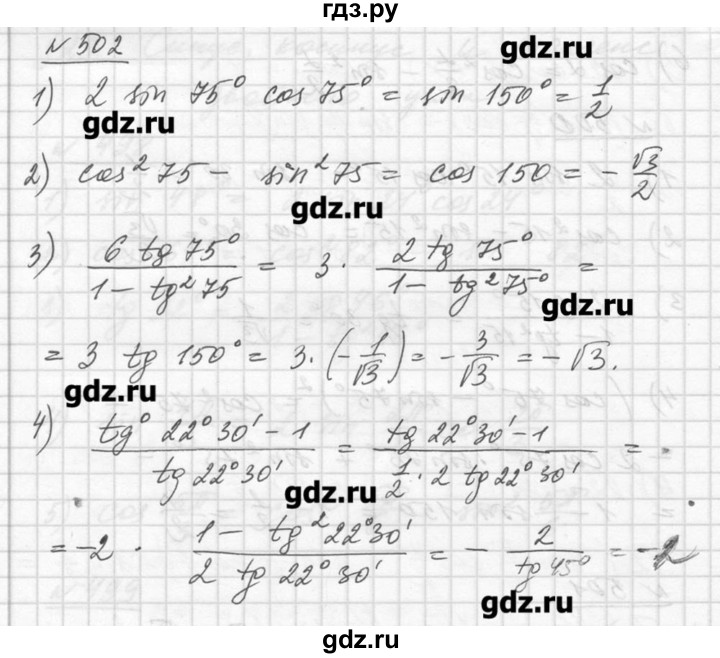 гдз.ру
№ 502
gdz.ru
1) 2 sin 75° cos 75° = sin 150° = 1/2
gdz.ru
2) cos² 75 - sin² 75 = cos 150 = - √3/2
gdz.ru
3) 6 tg 75° / 1 - tg² 75 = 3 · 2 tg 75° / 1 - tg² 75° =
gdz.ru
= 3 tg 150° = 3 · (- 1/√3) = - 3/√3 = - √3.
gdz.ru
4) tg° 22°30' - 1 / tg 22°30' = tg 22°30' - 1 / 1/2 · 2 tg 22°30' =
gdz.ru
= -2 · 1 - tg² 22°30' / 2 tg 22°30' = - 2 / tg 45° = -2
gdz.ru
gdz.ru